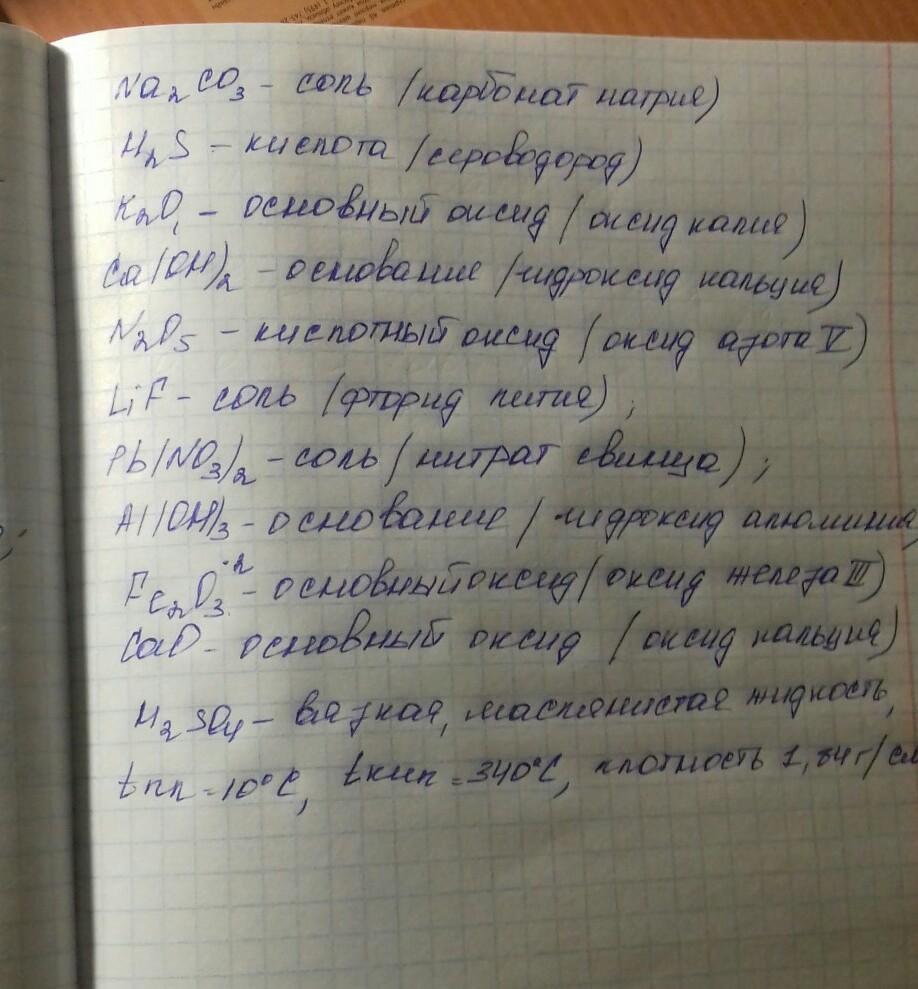 Na₂CO₃ - соль (карбонат натрия)
H₂S - кислота (сероводород)
K₂O - основный оксид (оксид калия)
Ca(OH)₂ - основание (гидроксид кальция)
N₂O₅ - кислотный оксид (оксид азота V)
LiF - соль (фторид лития);
Pb(NO₃)₂ - соль (нитрат свинца);
Al(OH)₃ - основание (гидроксид алюминия)
Fe₂O₃⁻² - основный оксид (оксид железа III)
CaO - основный оксид (оксид кальция)
H₂SO₄ - вязкая, маслянистая жидкость,
tпл = 10°C, tкип = 340°C, плотность 1,84 г/см